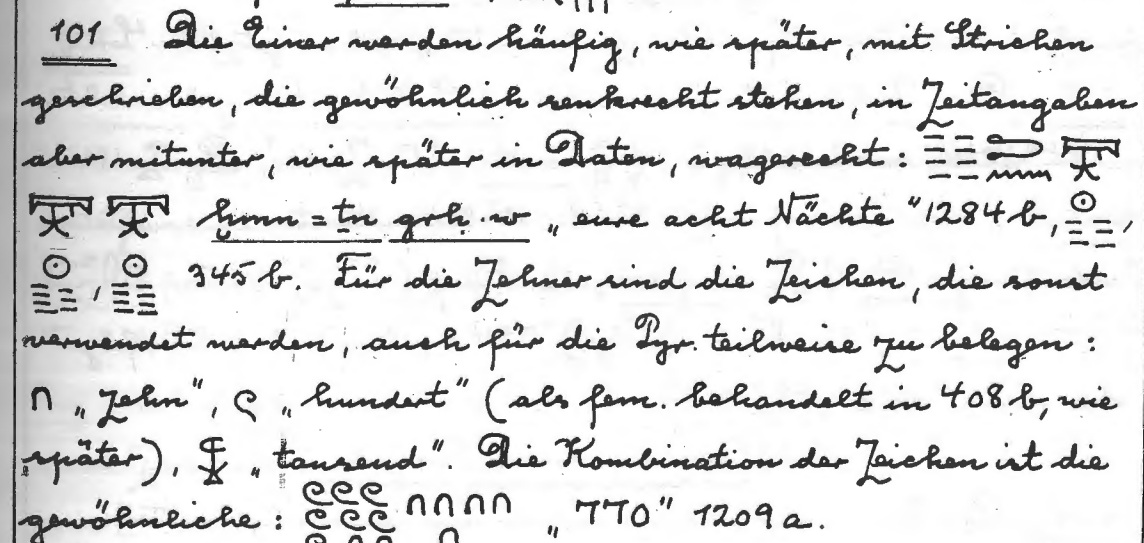 101 Die Einer werden häufig, wie später, mit Strichen
geschrieben, die gewöhnlich senkrecht stehen, in Zeitangaben
aber mitunter, wie später in Daten, wagerecht:
ḫmn=ṯn grḥ.w „eure acht Nächte" 1284 b,
345 b. Für die Zehner sind die Zeichen, die sonst
verwendet werden, auch für die Pyr. teilweise zu belegen:
∩ „zehn", „hundert" (als fem. behandelt in 408 b, wie
später), „tausend". Die Kombination der Zeichen ist die
gewöhnliche: ∩∩∩∩ „770" 1209 a.